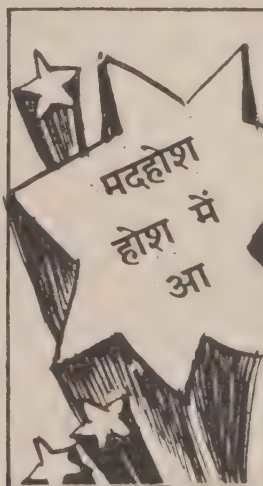 मदहोश
होश में
आ